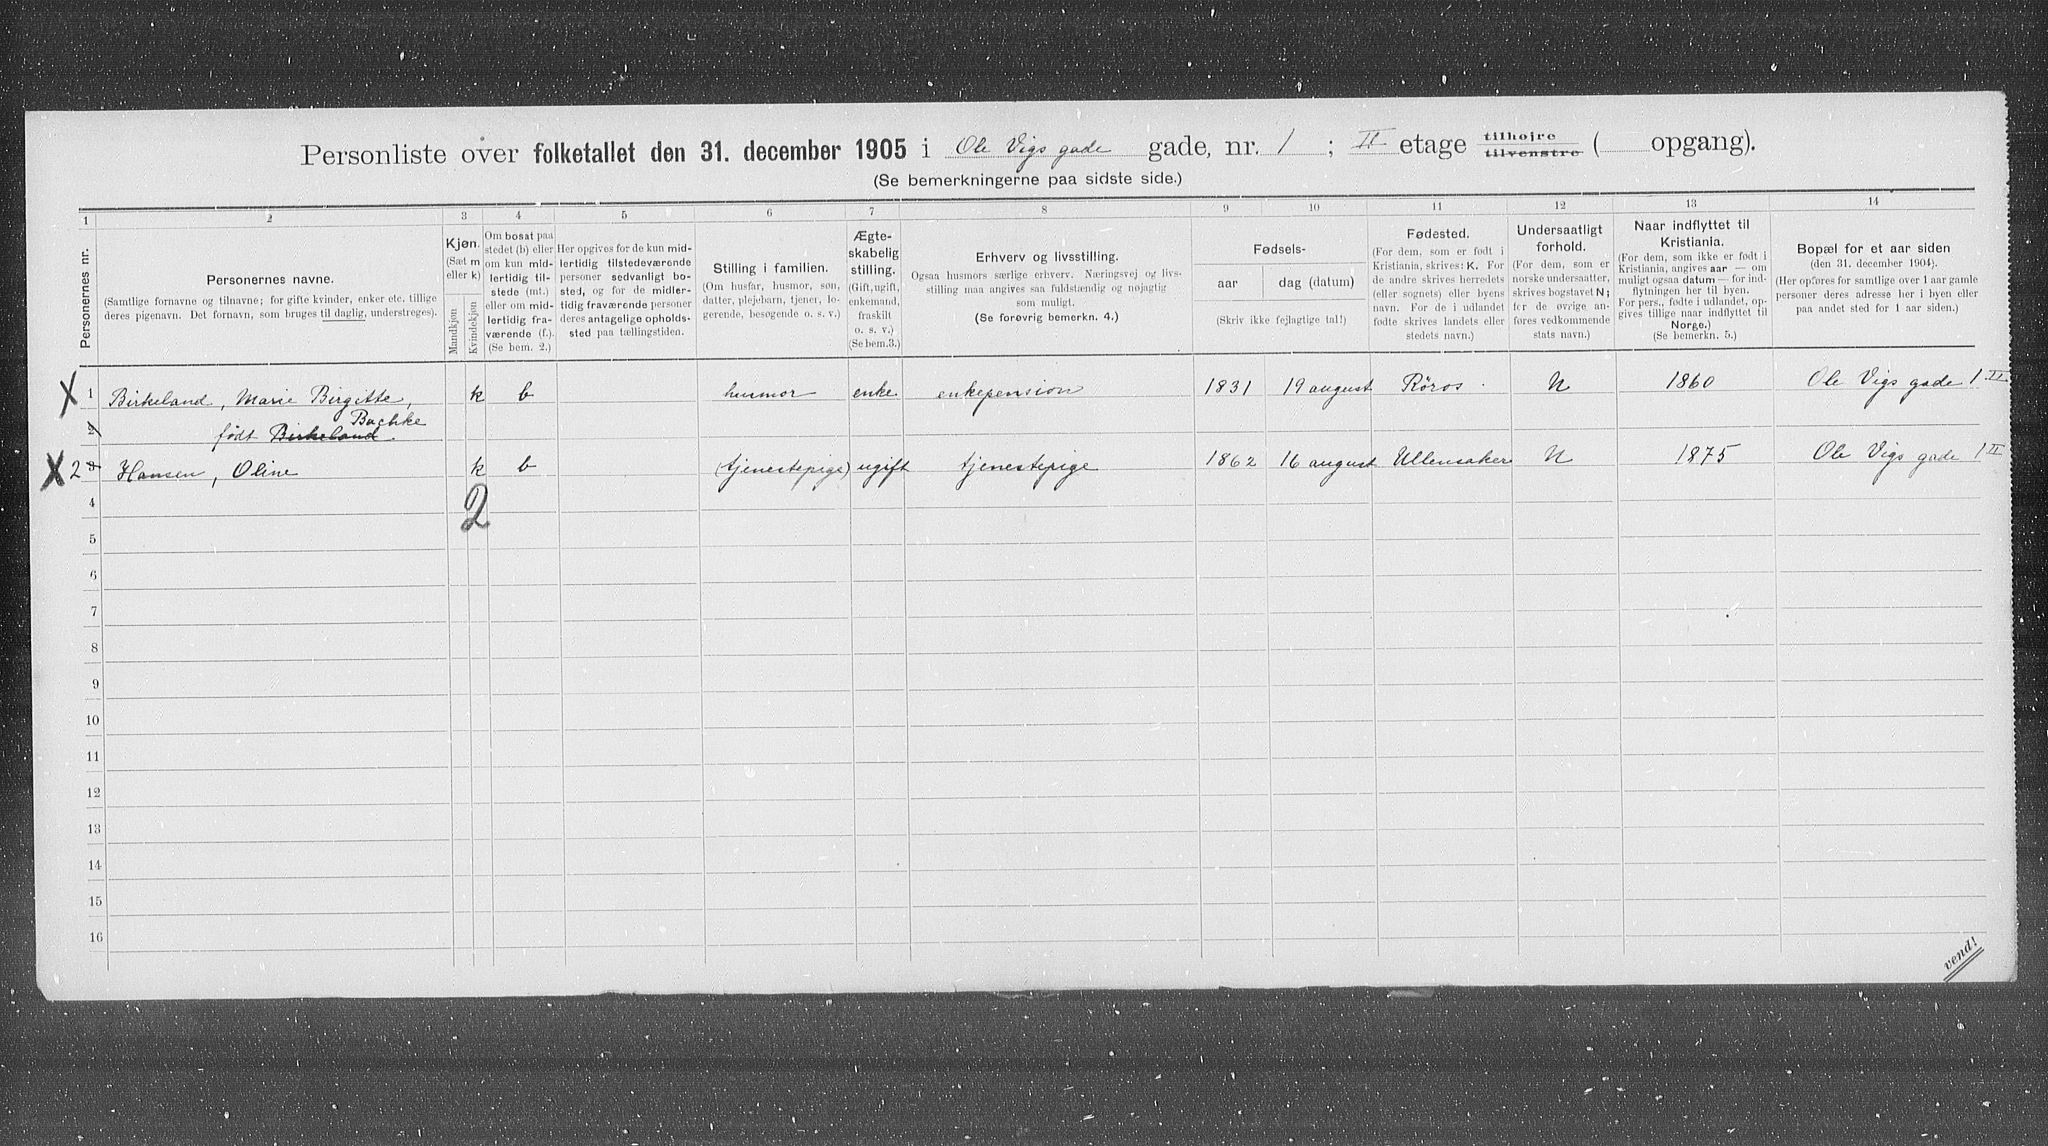 Personliste over folketallet den 31. december 1905 i Ole Vigs gade gade, nr. 1 ; II etage tilhøjre tilvenstre ( opgang).
(Se bemerkningerne paa sidste side.)
1 2 3 4 5 6 7 8 9 10 11 12 13 14
Personernes nr.
Personernes navne.
(Samtlige fornavne og tilnavne; for gifte kvinder, enker etc. tillige
deres pigenavn. Det fornavn, som bruges til daglig, understreges).
Kjøn.
(Sæt m
eller k)
Mandkjøn
Kvindekjøn
Om bosat paa
stedet (b) eller
om kun mid-
lertidig til-
stede (mt.)
eller om mid-
lertidig fra-
værende (f.).
(Se bem. 2.)
Her opgives for de kun mid-
lertidig tilstedeværende
personer sedvanligt bo-
sted, og for de midler-
tidig fraværende personer
deres antagelige opholds-
sted paa tællingstiden.
Stilling i familien.
(Om husfar, husmor, søn,
datter, plejebarn, tjener, lo-
gerende, besøgende o. s. v.)
Ægte-
skabelig
stilling.
(Gift, ugift,
enkemand,
fraskilt
o. s. v.)
(Se bem.3.)
Erhverv og livsstilling.
Ogsaa husmors særlige erhverv. Næringsvej og livs-
stilling maa angives saa fuldstændig og nøjagtig
som muligt.
(Se forøvrig bemerkn. 4.)
Fødsels-
aar
dag (datum)
(Skriv ikke fejlagtige tal!)
Fødested.
(For dem, som er født i
Kristiania, skrives: K. For
de andre skrives herredets
(eller sognets) eller byens
navn. For de i udlandet
fødte skrives landets eller
stedets navn.)
Undersaatligt
forhold.
(For dem, som er
norske undersaatter,
skrives bogstavet N;
for de øvrige an-
føres vedkommende
stats navn.)
Naar indflyttet til
Kristiania.
(For dem, som ikke er født i
Kristiania, angives aar — om
muligt ogsaa datum — for ind-
flytningen her til byen.
For pers., fødte i udlandet, op-
gives tillige naar indflyttet til
Norge.)
(Se bemerkn. 5.)
Bopæl for et aar siden
(den 31. december 1904).
(Her opføres for samtlige over 1 aar gamle
personer deres adresse her i byen eller
paa andet sted for 1 aar siden.)
X 1 Birkeland, Marie Birgitte, k b husmor enke enkepension 1831 19 august Røros N 1860 Ole Vigs gade 1 II
2 født Birkeland Bachke
X 2 3 Hansen, Oline k b (tjenestepige) ugift tjenestepige 1862 16 august Ullensaker N 1875 Ole Vigs gade 1 II
4 2
5
6
7
8
9
10
11
12
13
14
15
16
vend!